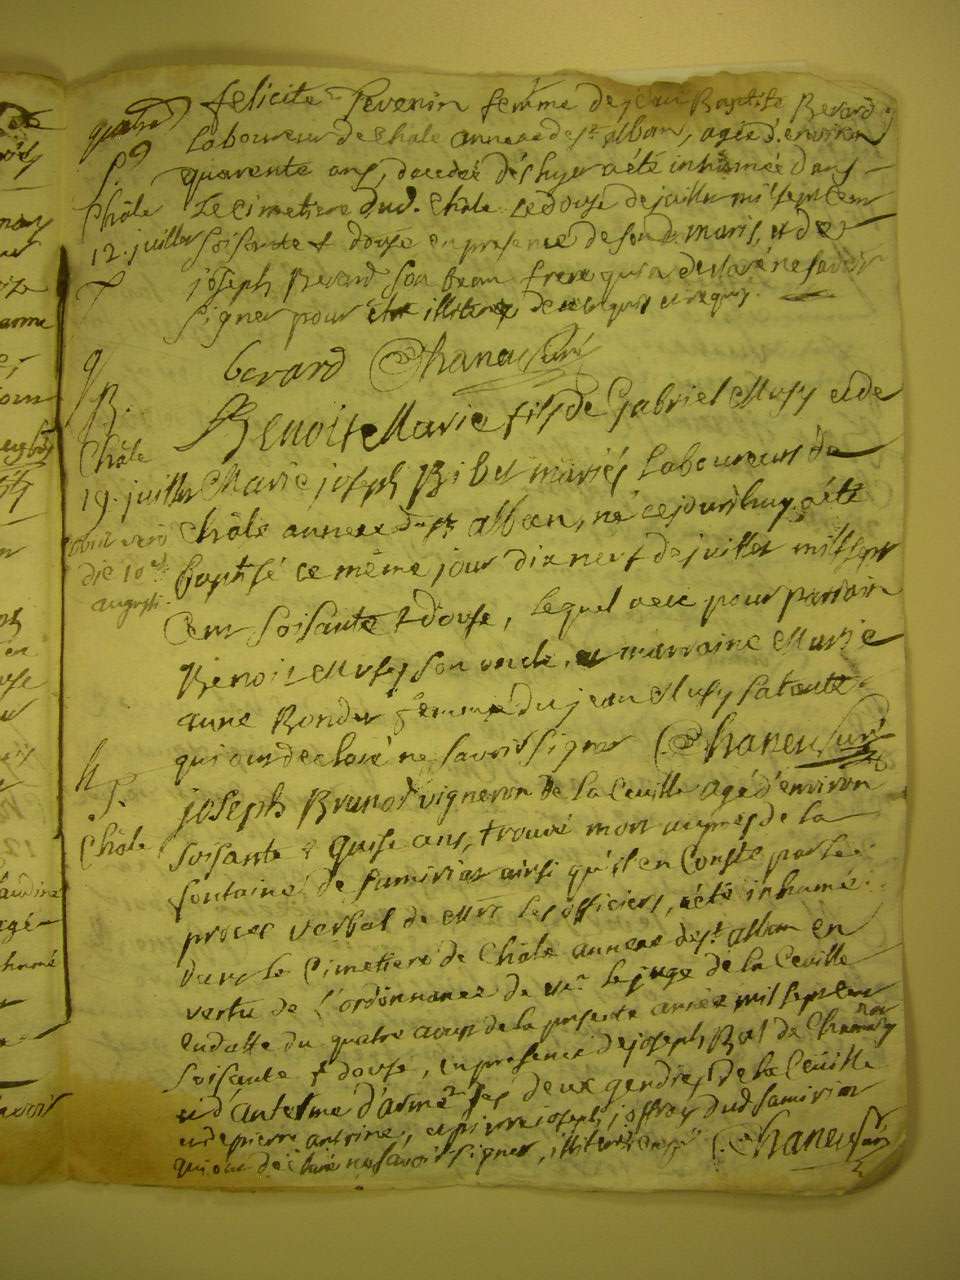 felicite Tevenin femme de jean Baptiste Berard
Laboureur de Chale annexe de st alban, agée d'environ
quarente ans, decedeé dés hyer a été inhumée dans
Le cimetiere dud. Chale Le douse de juillet mil sept cent
soisante & douse en presence de sond. maris, et de
joseph Berard son beau frere qui a declaré ne savoir
signer pour être illiteré de ce enquis et requis.
berard Chaneu Curé
S.
Châle
12. juillet
B.
Châle
19. juillet
Benoit Marie fils de Gabriel Musy et de
Marie joseph Bibet mariés Laboureurs de
Châle annexe de st alban, né ce jourdhuy, a été
baptisé ce même jour dix neuf de juillet mil sept
Cent soisante & douse, lequel a eu pour parrain
Benoit Musy son oncle, et marraine Marie
anne Bondet femme du jean Musy sa tante
qui ont declaré ne savoir signer Chaneu Curé
obiit vero
die 10a
augusti
S.
Châle
joseph Brunod vigneron de la Cueille agé d'environ
soisante & quise ans, trouvé mort auprés de la
fontaine de Samiriat ainsi qu'il en Conste par le
procés verbal de Mrs les officiers, a été inhumé
dans le Cimetiere de Châle annexe de st alban en
vertu de L'ordonnance de mr. le juge de la Cueille
en datte du quatre aoust de la presente année mil sept cent
soisante & douse, en presence de joseph Bal de
et d'antelme d'armé ses deux gendres de la Cueille
et de pierre antoine, et pierre joseph joffray dud. Samiriat
qui ont déclaré ne savoir signer, Chaneu Curé